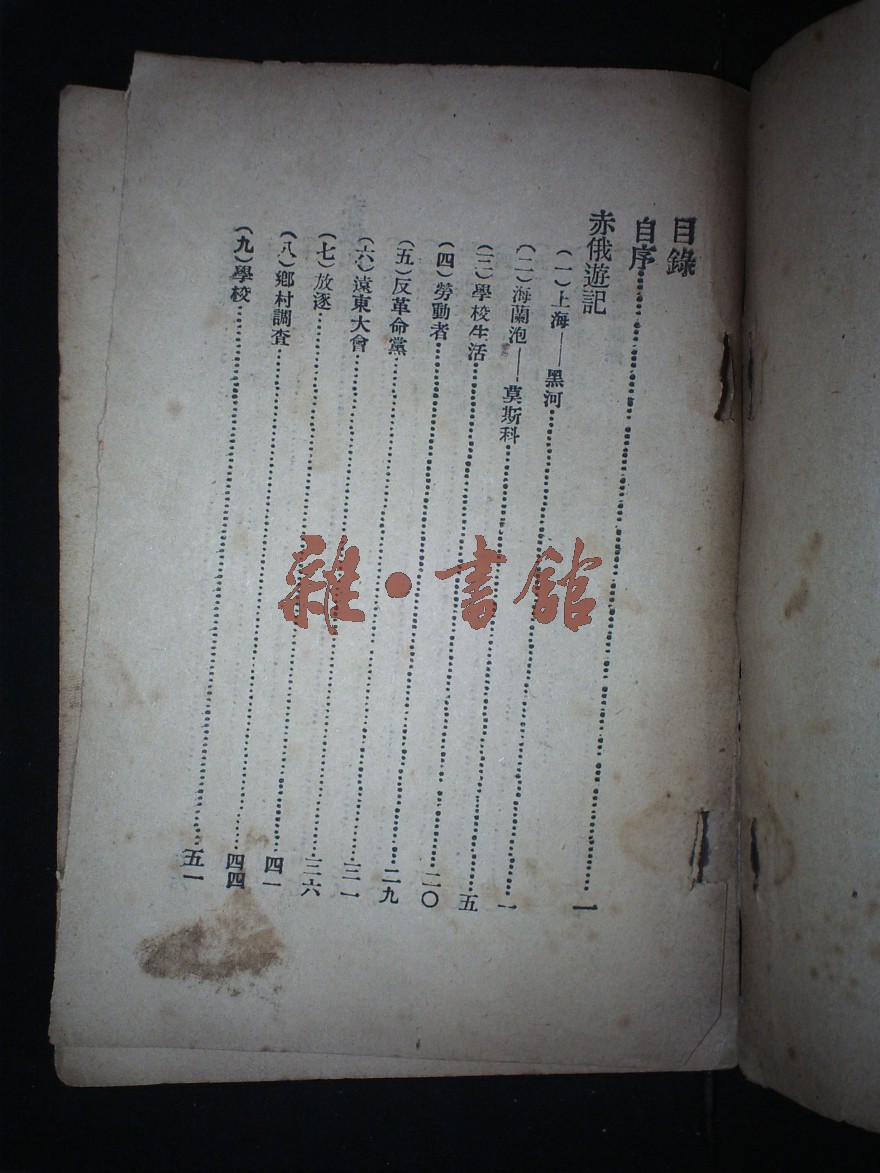 目錄
自序……………………………一
赤俄遊記
(一)上海——黑河……………………………一
(二)海蘭泡——莫斯科……………………………五
(三)學校生活……………………………二〇
(四)勞動者……………………………二九
(五)反革命黨……………………………三一
(六)遠東大會……………………………三六
(七)放逐……………………………四一
(八)鄉村調查……………………………四四
(九)學校……………………………五一
雜·書館